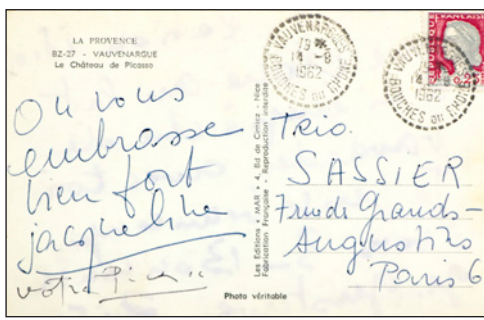 LA PROVENCE
BZ-27 - VAUVENARGUE
Le Château de Picasso
On vous
embrasse
bien fort
jacqueline
votre Picasso
Les Editions "MAR" 4, Bd de Cimiez - Nice
Fabrication Française - Reproduction interdite
Photo véritable
VAUVENARGUES
19
14 -8
1962
BOUCHES DU RHONE
1962
BOUCHES DU RHONE
Trio.
SASSIER
7 rue de Grands-
Augustins
Paris 6